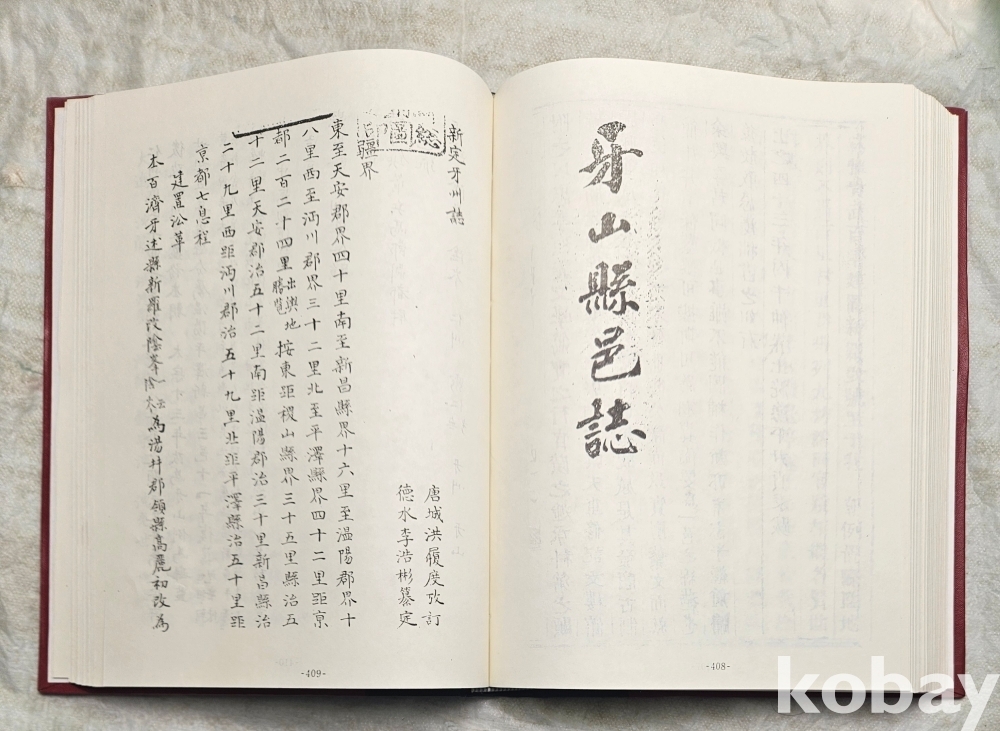 牙山縣邑誌
-408-
新定牙州誌
唐城洪履度攷訂
德水李浩彬纂定
總圖
疆界
東至天安郡界四十里南至新昌縣界十六里至溫陽郡界十
八里西至沔川郡界三十二里北至平澤縣界四十二里距京
都二百二十四里出輿地勝覽按東距稷山縣界三十五里縣治五
十二里天安郡治五十二里南距溫陽郡治三十里新昌縣治
二十九里西距沔川郡治五十九里北距平澤縣治五十里距
京都七息程
建置沿革
本百濟牙述縣新羅改陰峯為湯井郡領縣高麗初改為
-409-
kobay